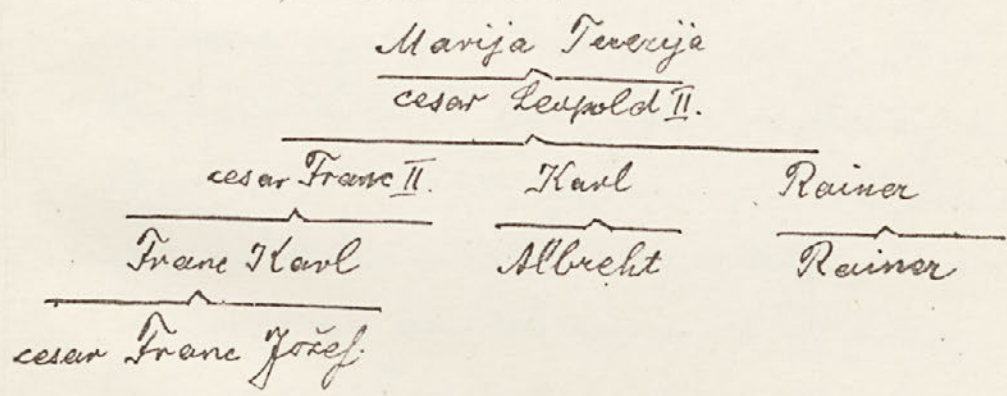 Marija Terezija
cesar Leopold II.
cesar Franc II. Karl Rainer
Franc Karl Albreht Rainer
cesar Franc Jožef.